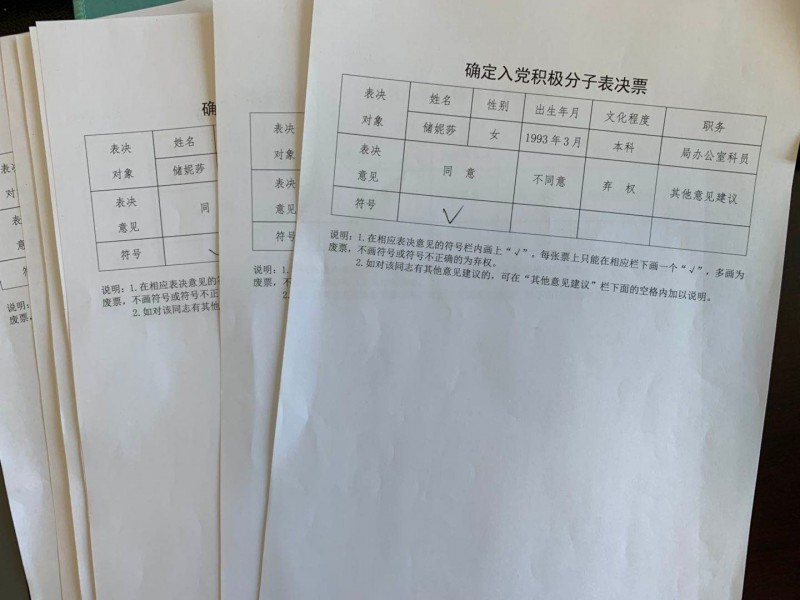 确定入党积极分子表决票
表决对象 姓名 性别 出生年月 文化程度 职务
储妮莎 女 1993年3月 本科 局办公室科员
表决意见 同 意 不同意 弃 权 其他意见建议
符号 √
说明：1.在相应表决意见的符号栏内画上“√”。每张票上只能在相应栏下画一个“√”，多画为
废票，不画符号或符号不正确的为弃权。
2.如对该同志有其他意见建议的，可在“其他意见建议”栏下面的空格内加以说明。
表决
对象
表决
意见
符号
说明：1.
废票，不
2.
确
表决对象 姓名
储妮莎
表决意见 同
符号
说明：1.在相应表决意见的
废票，不画符号或符号不正
2.如对该同志有其他